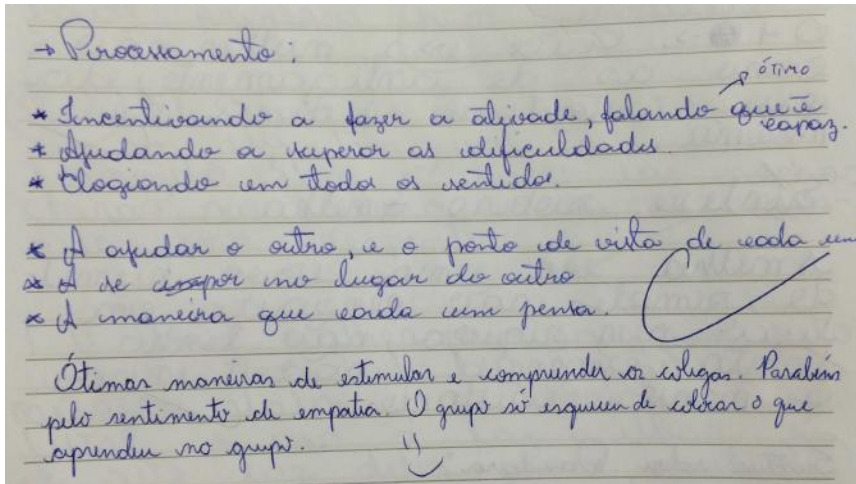 → Processamento:
ÓTIMO
* Incentivando a fazer a ativade, falando que é
capaz.
* Ajudando a superar as dificuldades
* Elogiando em todos os sentidos.
* A ajudar o outro, e o ponto de vista de cada um
* A se por no lugar do outro
* A maneira que cada um pensa.
Ótimas maneiras de estimular e compreender os colegas. Parabéns
pelo sentimento de empatia. O grupo só esqueceu de colocar o que
aprendeu no grupo.